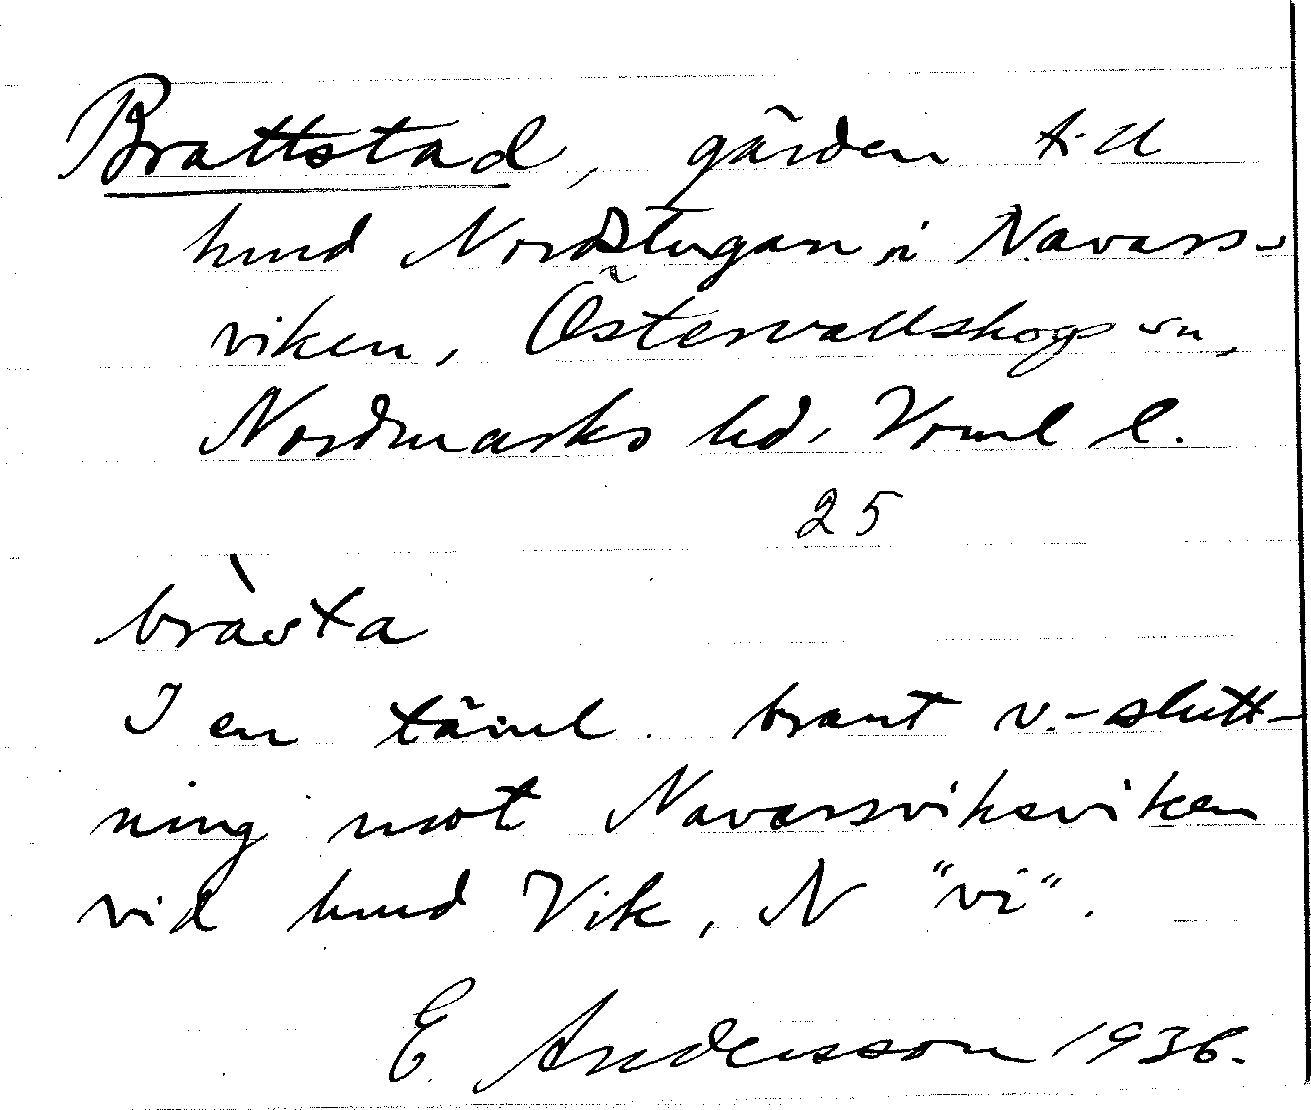 Brattstad, gården till
hmd Nordstugan i Navars-
viken, Östervallskogs sn,
Nordmarks hd, Vrml l.
25
bràsta
I en täml. brant v.-slutt-
ning mot Navarsviksviken
vid hmd Vik, N "vi".
E Andersson 1936.